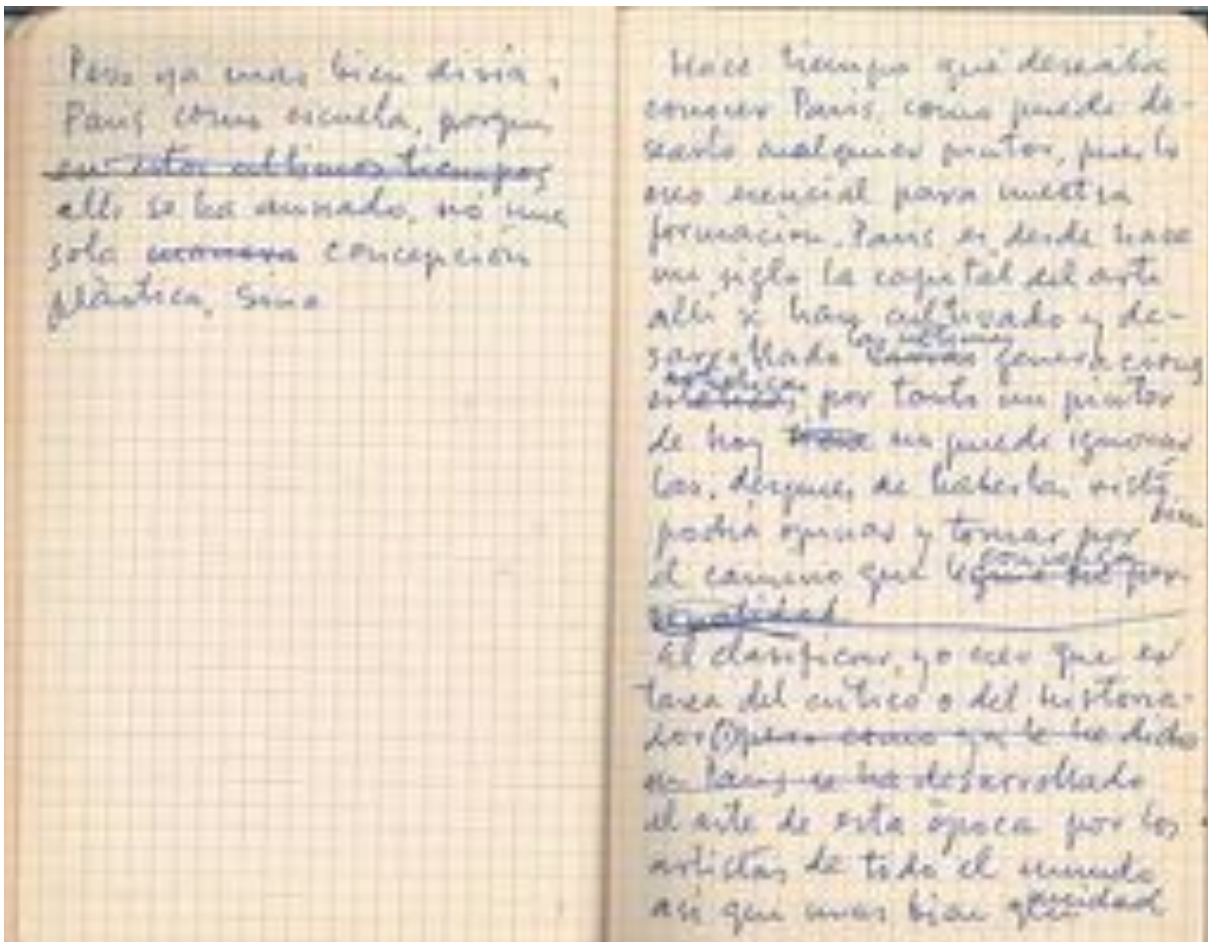 Pero yo mas bien diria,
Paris como escuela, porque
en estos ultimos tiempos
alli se ha aunado, no una
sola manera concepción
plàstica, sino
Hace tiempo que deseaba
conocer Paris, como puede de-
searlo cualquier pintor, pues lo
creo esencial para nuestra
formación. Paris es desde hace
un siglo la capital del arte
alli se han cultivado y de-
sarrollado las ultimas generaciones
por tanto un pintor
de hoy no puede ignorar
las, despues de haberlas visto
podrá opinar y tomar por
el camino que convenga
personalidad
Al clasificar, yo creo que es
tarea del critico o del historia-
dor pero como ya le he dicho
en Paris se ha desarrollado
el arte de esta época por los
artistas de todo el mundo
asi que mas bien